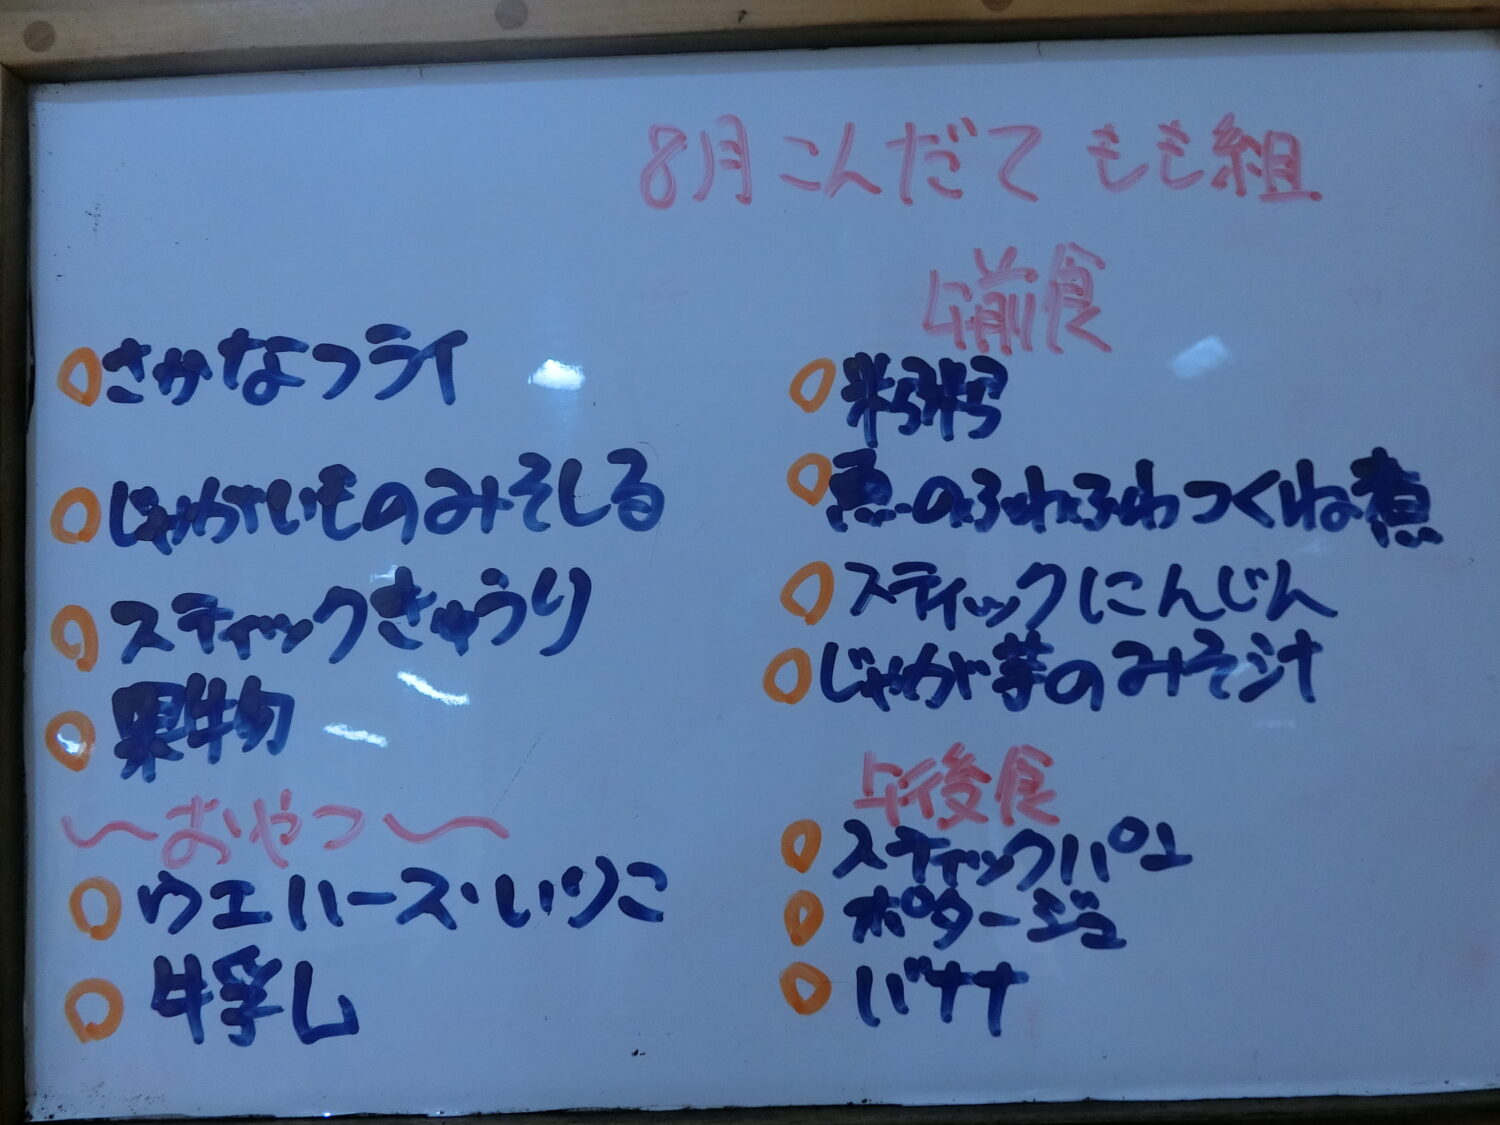 8月 こんだて もも組
さかなフライ
じゃがいものみそしる
スティックきゅうり
果物
〜おやつ〜
ウエハース・いりこ
牛乳
午前食
粥
魚のふわふわつくね煮
スティックにんじん
じゃが芋のみそ汁
午後食
スティックパン
ポタージュ
バナナ